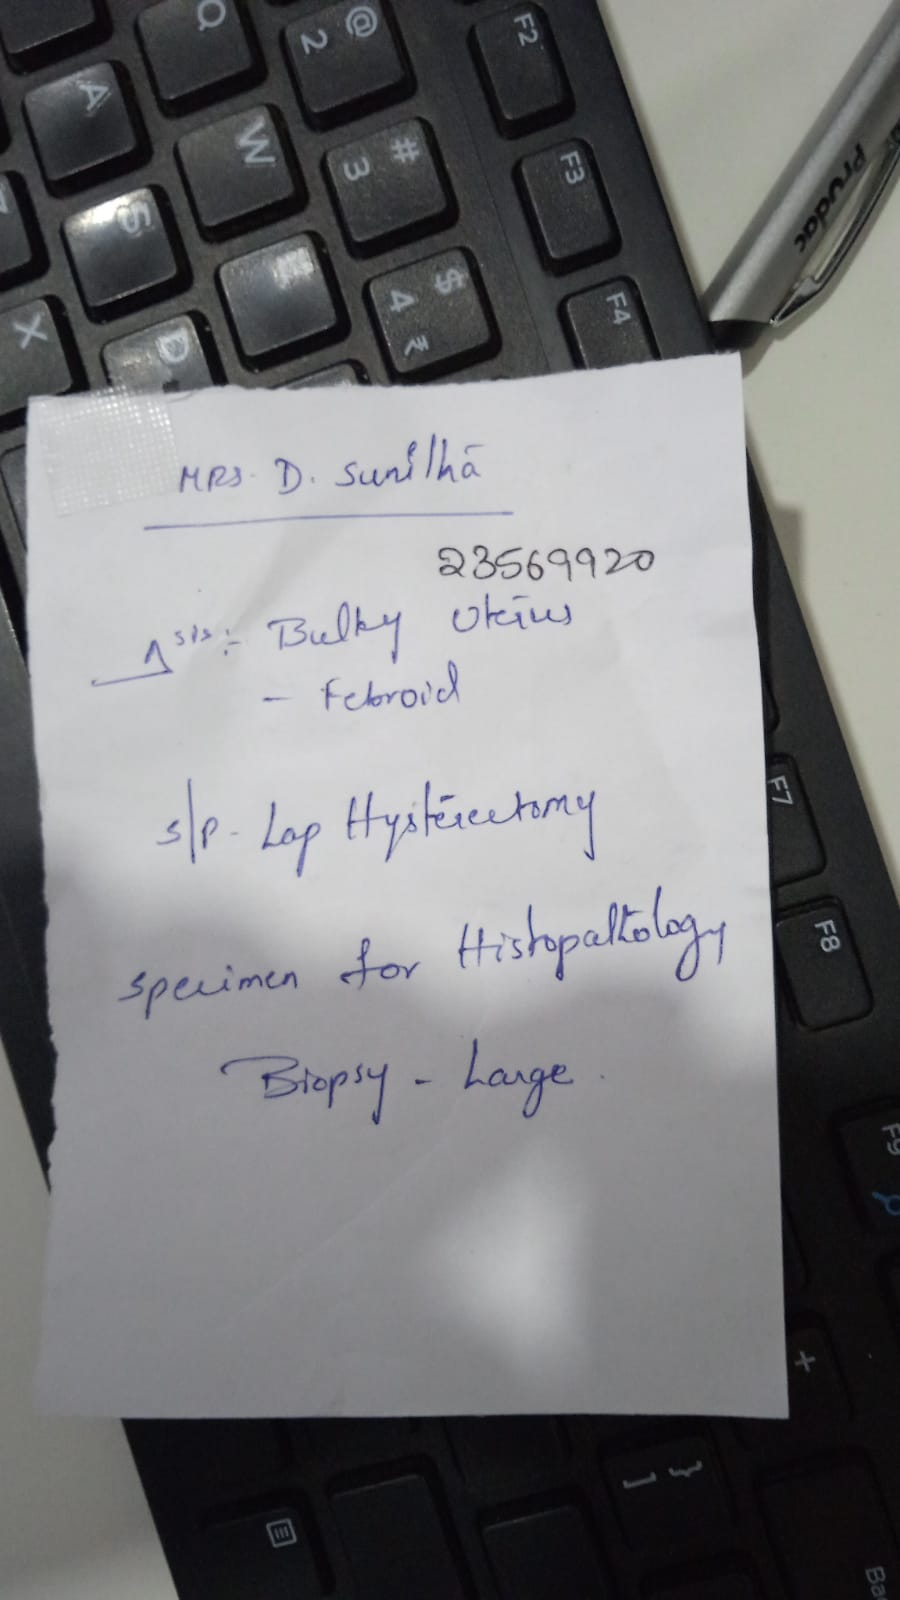 MRS. D. Sunitha
23569920
Δsis :- Bulky Uterus
- Febroid
s/p - Lap Hysterectomy
specimen for Histopathology
Biopsy - Large.
Prudac
Q
@ 2
F2
A
W
# 3
F3
S
$ 4 ₹
F4
X
D
F7
F8
F9
+
} ]
Ba